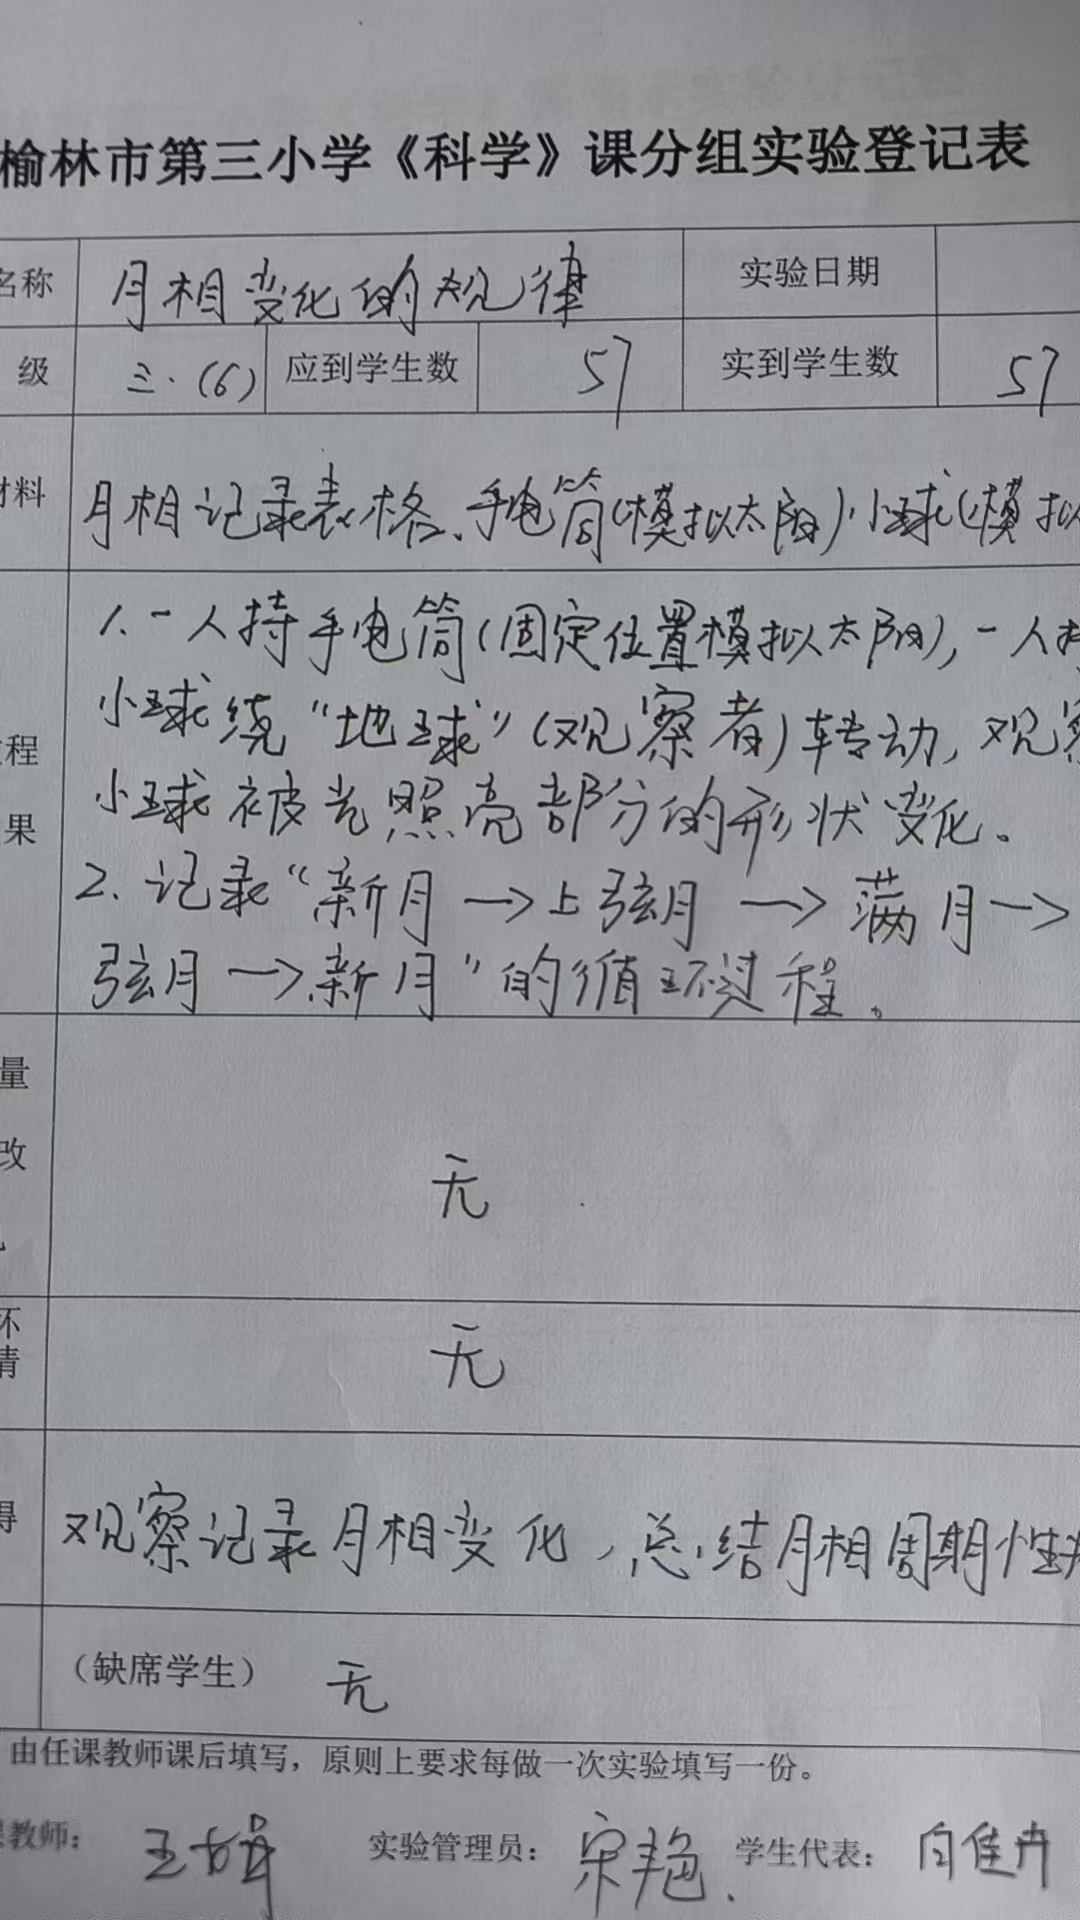 榆林市第三小学《科学》课分组实验登记表
名称 月相变化的规律 实验日期
级 三.(6) 应到学生数 57 实到学生数 57
材料 月相记录表格、手电筒(模拟太阳)、小球(模拟
1.一人持手电筒(固定位置模拟太阳),一人持
小球绕“地球”(观察者)转动,观察
程
小球被光照亮部分的形状变化。
果
2.记录“新月→上弦月→满月→
弦月→新月”的循环过程。
量
改
无
坏
情
无
得 观察记录月相变化,总结月相周期性
(缺席学生) 无
由任课教师课后填写,原则上要求每做一次实验填写一份。
教师: 王 实验管理员: 宋艳 学生代表: 白佳卉